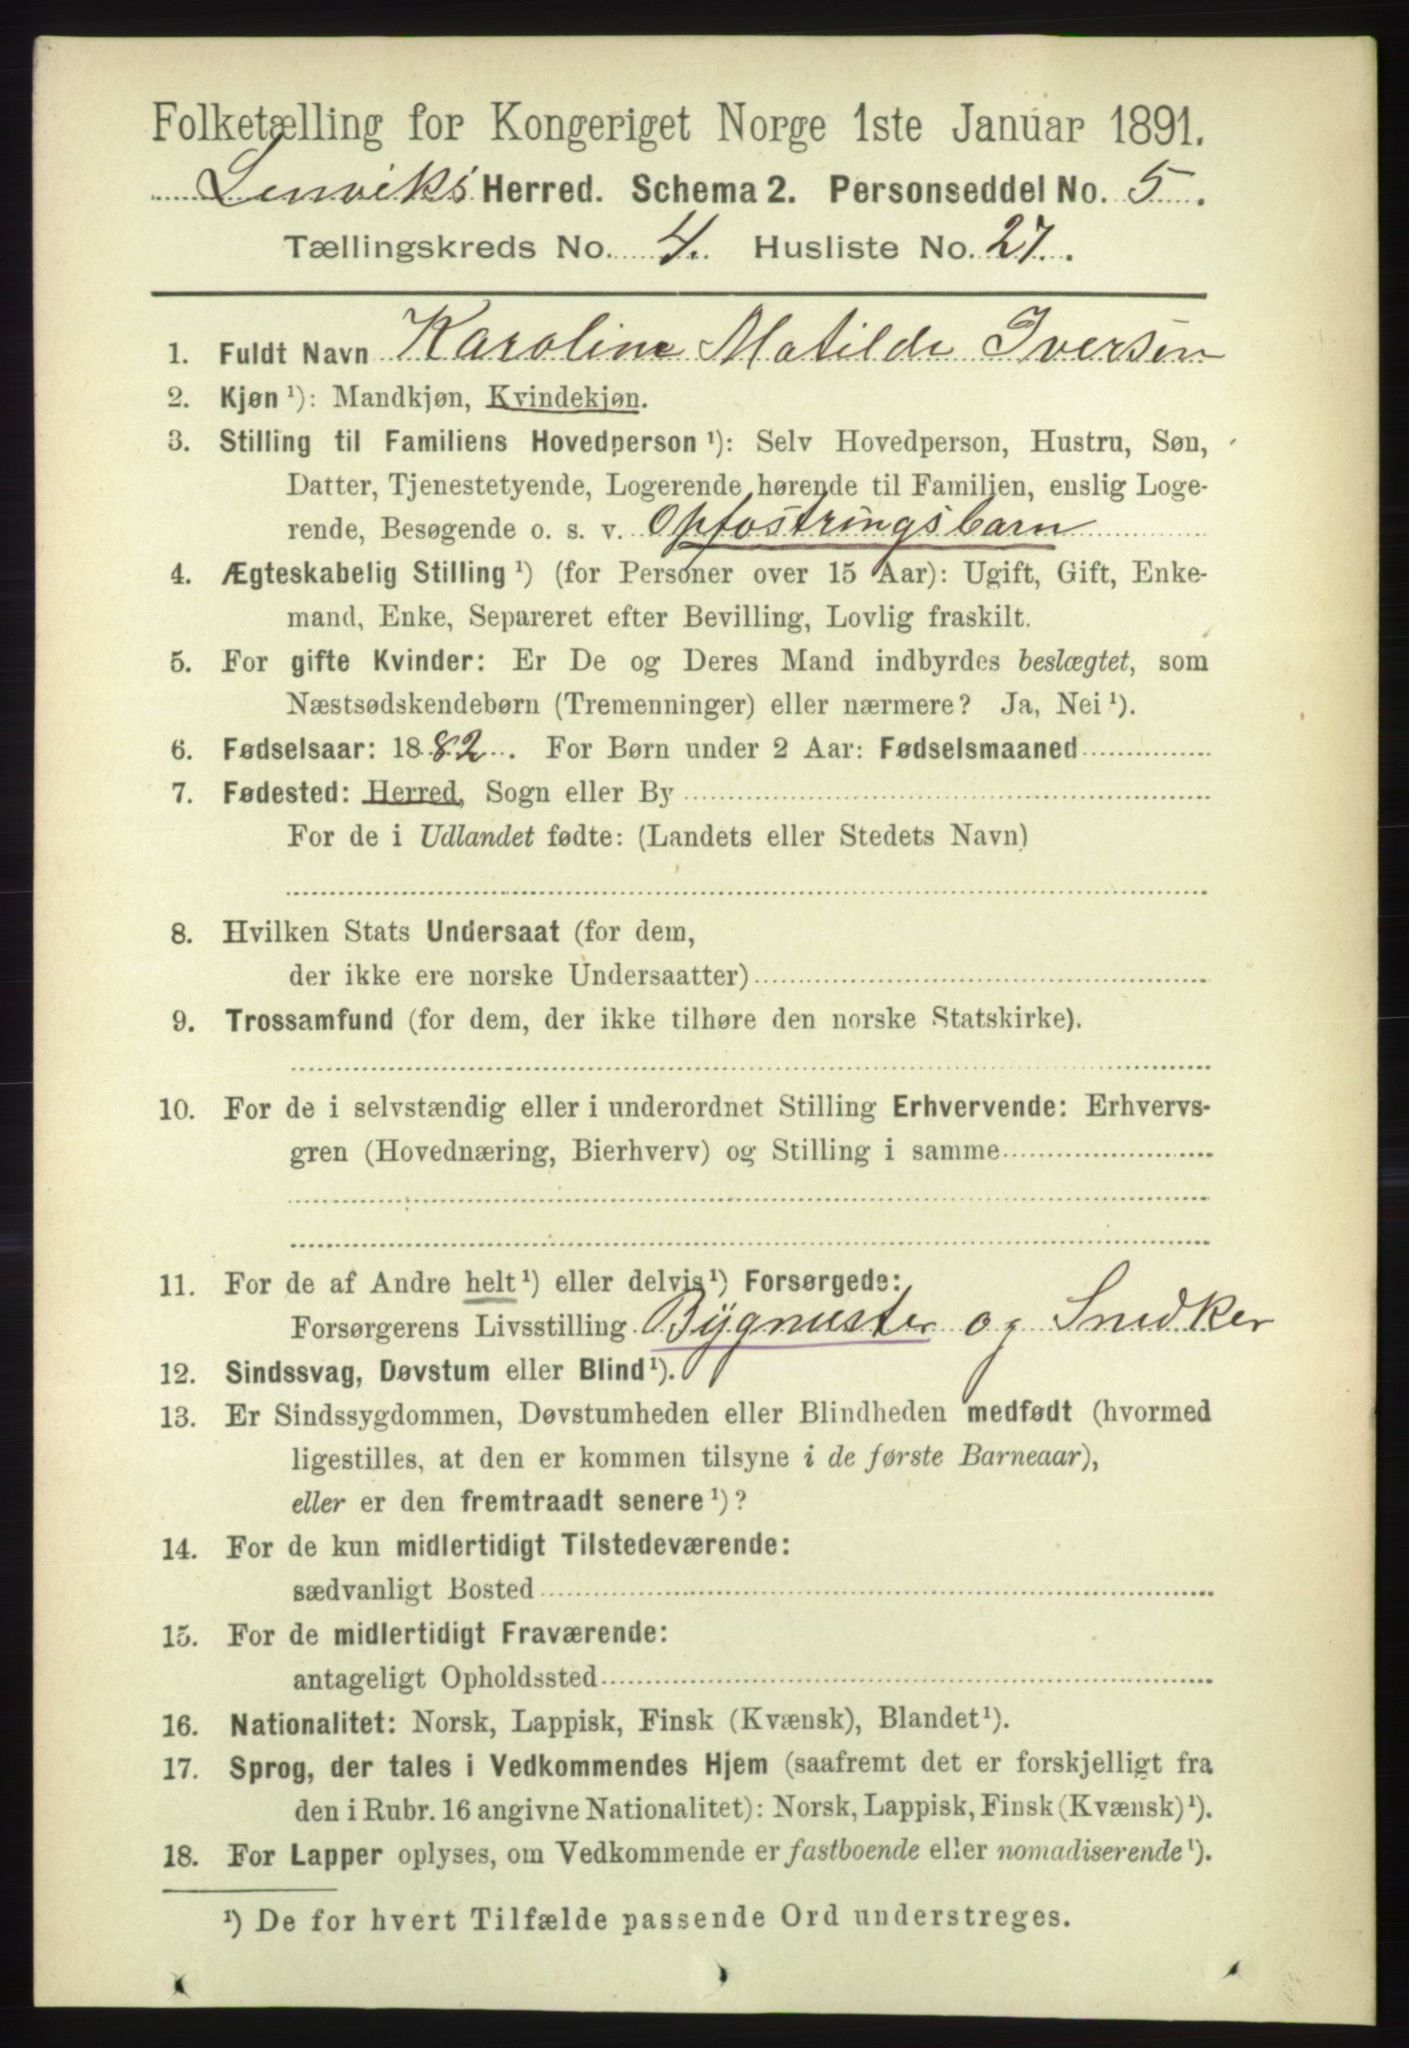 Folketælling for Kongeriget Norge 1ste Januar 1891.
Lenviks Herred. Schema 2. Personseddel No. 5.
Tællingskreds No. 4. Husliste No. 27.
1. Fuldt Navn Karoline Matilde Iversen
2. Kjøn ¹): Mandkjøn, Kvindekjøn.
3. Stilling til Familiens Hovedperson ¹): Selv Hovedperson, Hustru, Søn,
Datter, Tjenestetyende, Logerende hørende til Familien, enslig Loge-
rende, Besøgende o. s. v. Opfostringsbarn
4. Ægteskabelig Stilling ¹) (for Personer over 15 Aar): Ugift, Gift, Enke-
mand, Enke, Separeret efter Bevilling, Lovlig fraskilt.
5. For gifte Kvinder: Er De og Deres Mand indbyrdes beslægtet, som
Næstsødskendebørn (Tremenninger) eller nærmere? Ja, Nei ¹).
6. Fødselsaar: 1882. For Børn under 2 Aar: Fødselsmaaned
7. Fødested: Herred, Sogn eller By
For de i Udlandet fødte: (Landets eller Stedets Navn)
8. Hvilken Stats Undersaat (for dem,
der ikke ere norske Undersaatter)
9. Trossamfund (for dem, der ikke tilhøre den norske Statskirke).
10. For de i selvstændig eller i underordnet Stilling Erhvervende: Erhvervs-
gren (Hovednæring, Bierhverv) og Stilling i samme
11. For de af Andre helt ¹) eller delvis ¹) Forsørgede:
Forsørgerens Livsstilling Bygmester og Snedker
12. Sindssvag, Døvstum eller Blind ¹).
13. Er Sindssygdommen, Døvstumheden eller Blindheden medfødt (hvormed
ligestilles, at den er kommen tilsyne i de første Barneaar),
eller er den fremtraadt senere ¹)?
14. For de kun midlertidigt Tilstedeværende:
sædvanligt Bosted
15. For de midlertidigt Fraværende:
antageligt Opholdssted
16. Nationalitet: Norsk, Lappisk, Finsk (Kvænsk), Blandet ¹).
17. Sprog, der tales i Vedkommendes Hjem (saafremt det er forskjelligt fra
den i Rubr. 16 angivne Nationalitet): Norsk, Lappisk, Finsk (Kvænsk) ¹).
18. For Lapper oplyses, om Vedkommende er fastboende eller nomadiserende ¹).
¹) De for hvert Tilfælde passende Ord understreges.